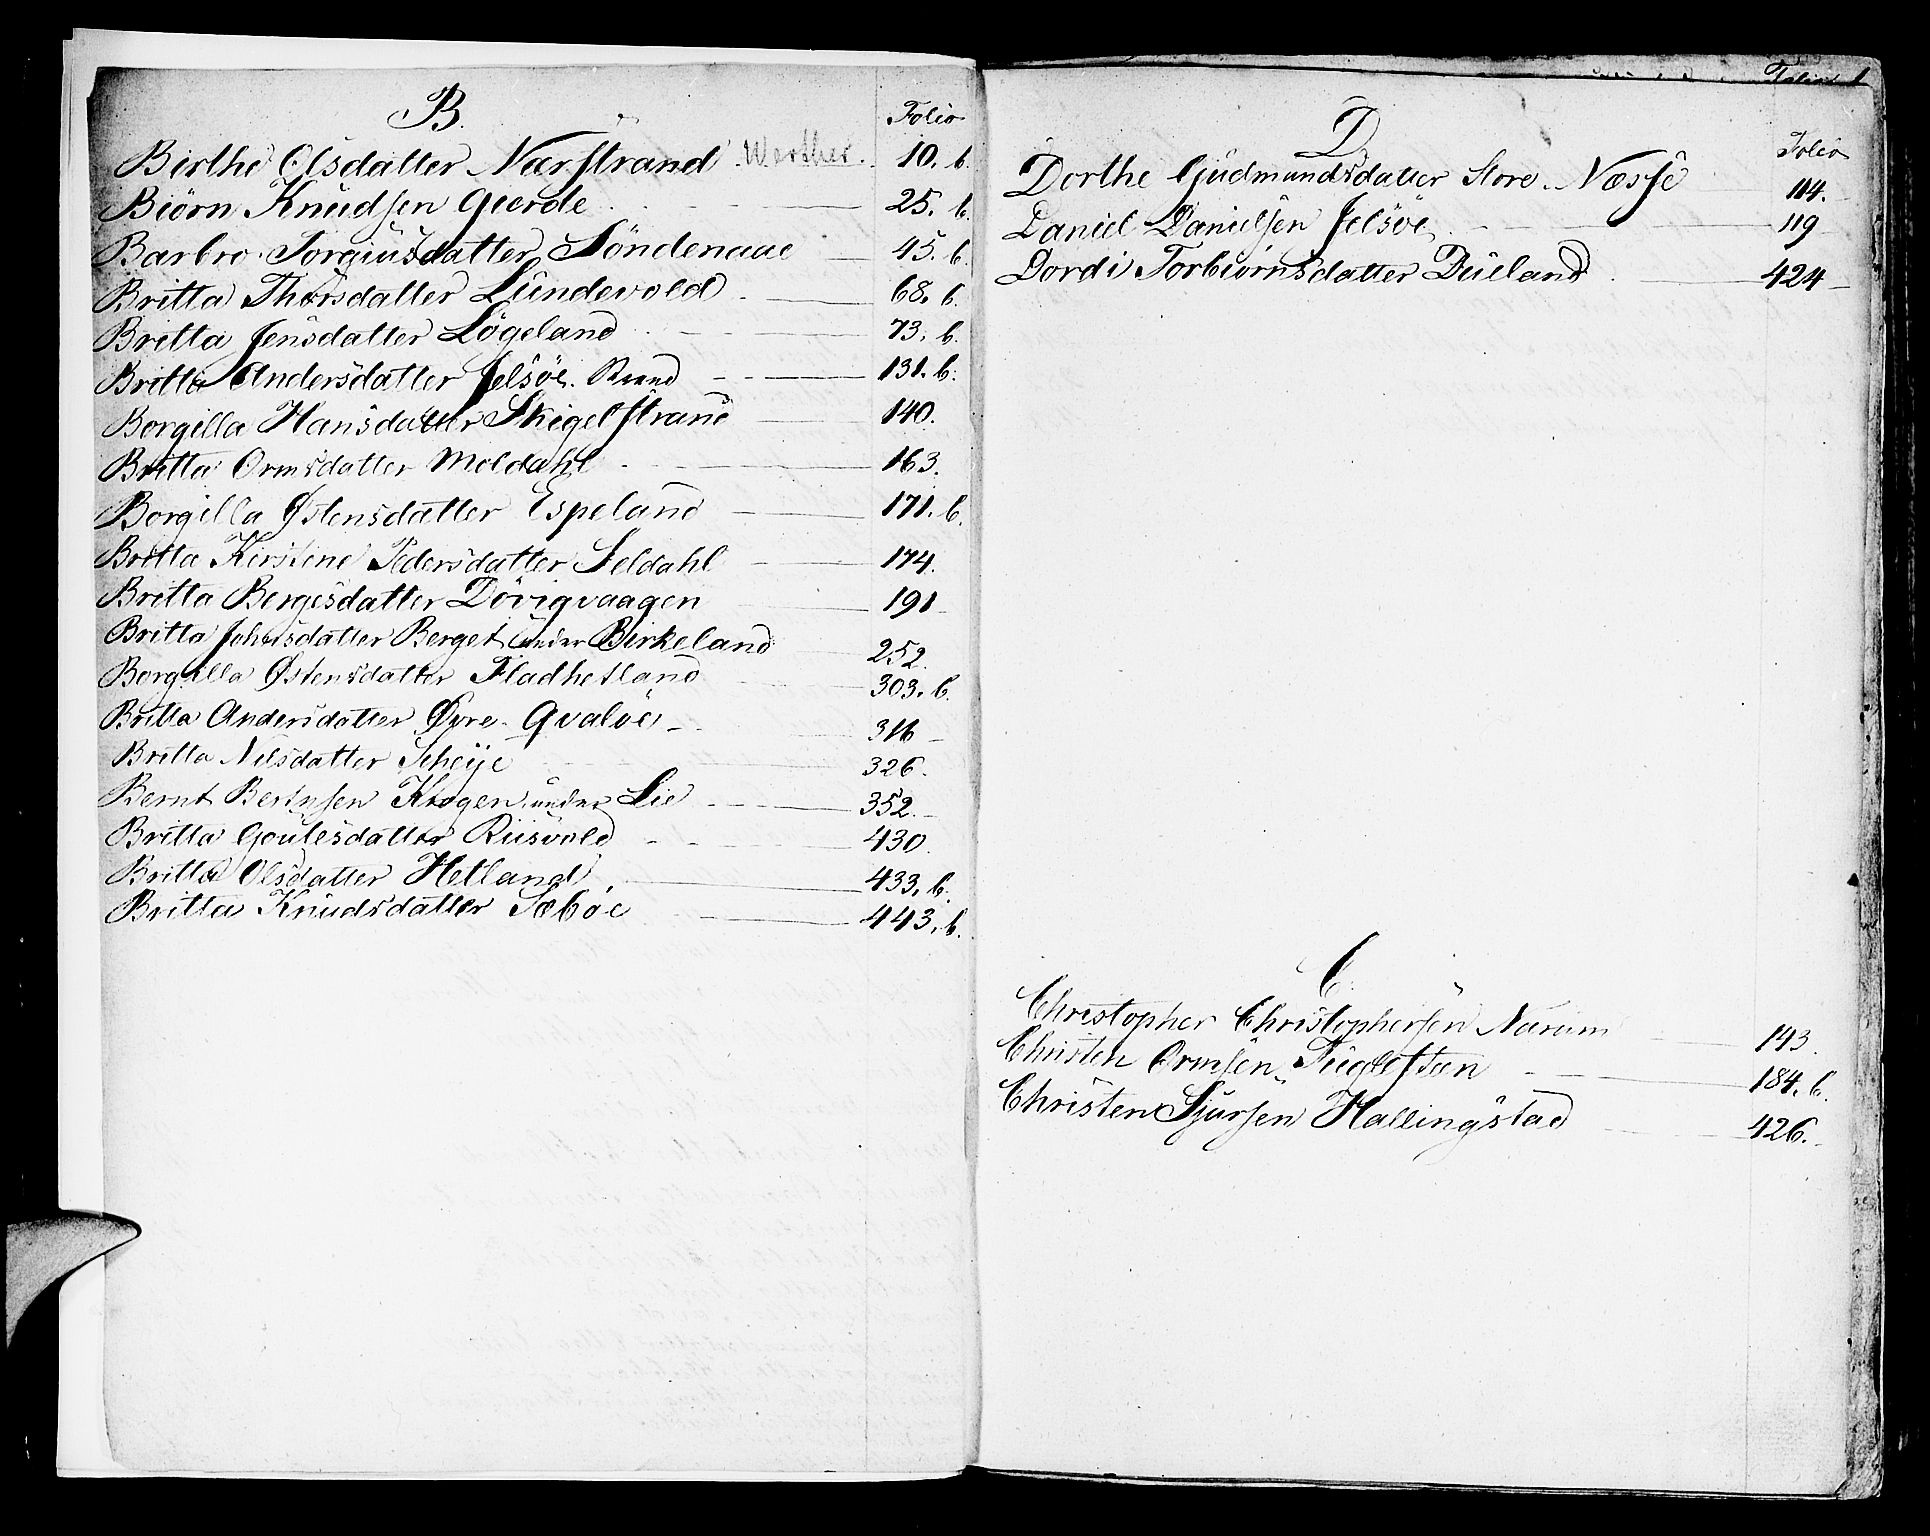 B.
Folio
Birthe Olsdatter Nærstrand. Werther. 10. b.
Biörn Knudsen Gierde 25. b.
Barbro Torgiusdatter Söndenaae 45. b.
Britta Thorsdatter Lundevold 68. b.
Britta Jensdatter Lögeland 73. b.
Britta Andersdatter Jelsöe. 131. b.
Borgilla Hansdatter Skigelstrand 140.
Britta Ormsdatter Moldahl 163.
Borgilla Østensdatter Espeland 171. b.
Britta Kirstine Pedersdatter Seldahl 174.
Britta Bergesdatter Dövigvaagen 191
Britta Johnsdatter Berget under Birkeland 252.
Borgilla Østensdatter Fladhetland 303. b.
Britta Andersdatter Øvre Qvaløe 316
Britta Nilsdatter Scheije 326.
Bernt Berntsen Krogen under Lie 352.
Britta Goutesdatter Riisvold 430.
Britta Olsdatter Hetland 433. b.
Britta Knudsdatter Sæböe 443. b.
Folio 1
D.
Folio
Dorthe Gudmundsdatter Store Næsse 114.
Daniel Danielsen Jelsöe 119
Dordi Torbiörnsdatter Dueland 424
C.
Christopher Christophersen Narum 143.
Christen Ormsen Fuglesteen 184. b.
Christen Sjursen Hallingstad 426.